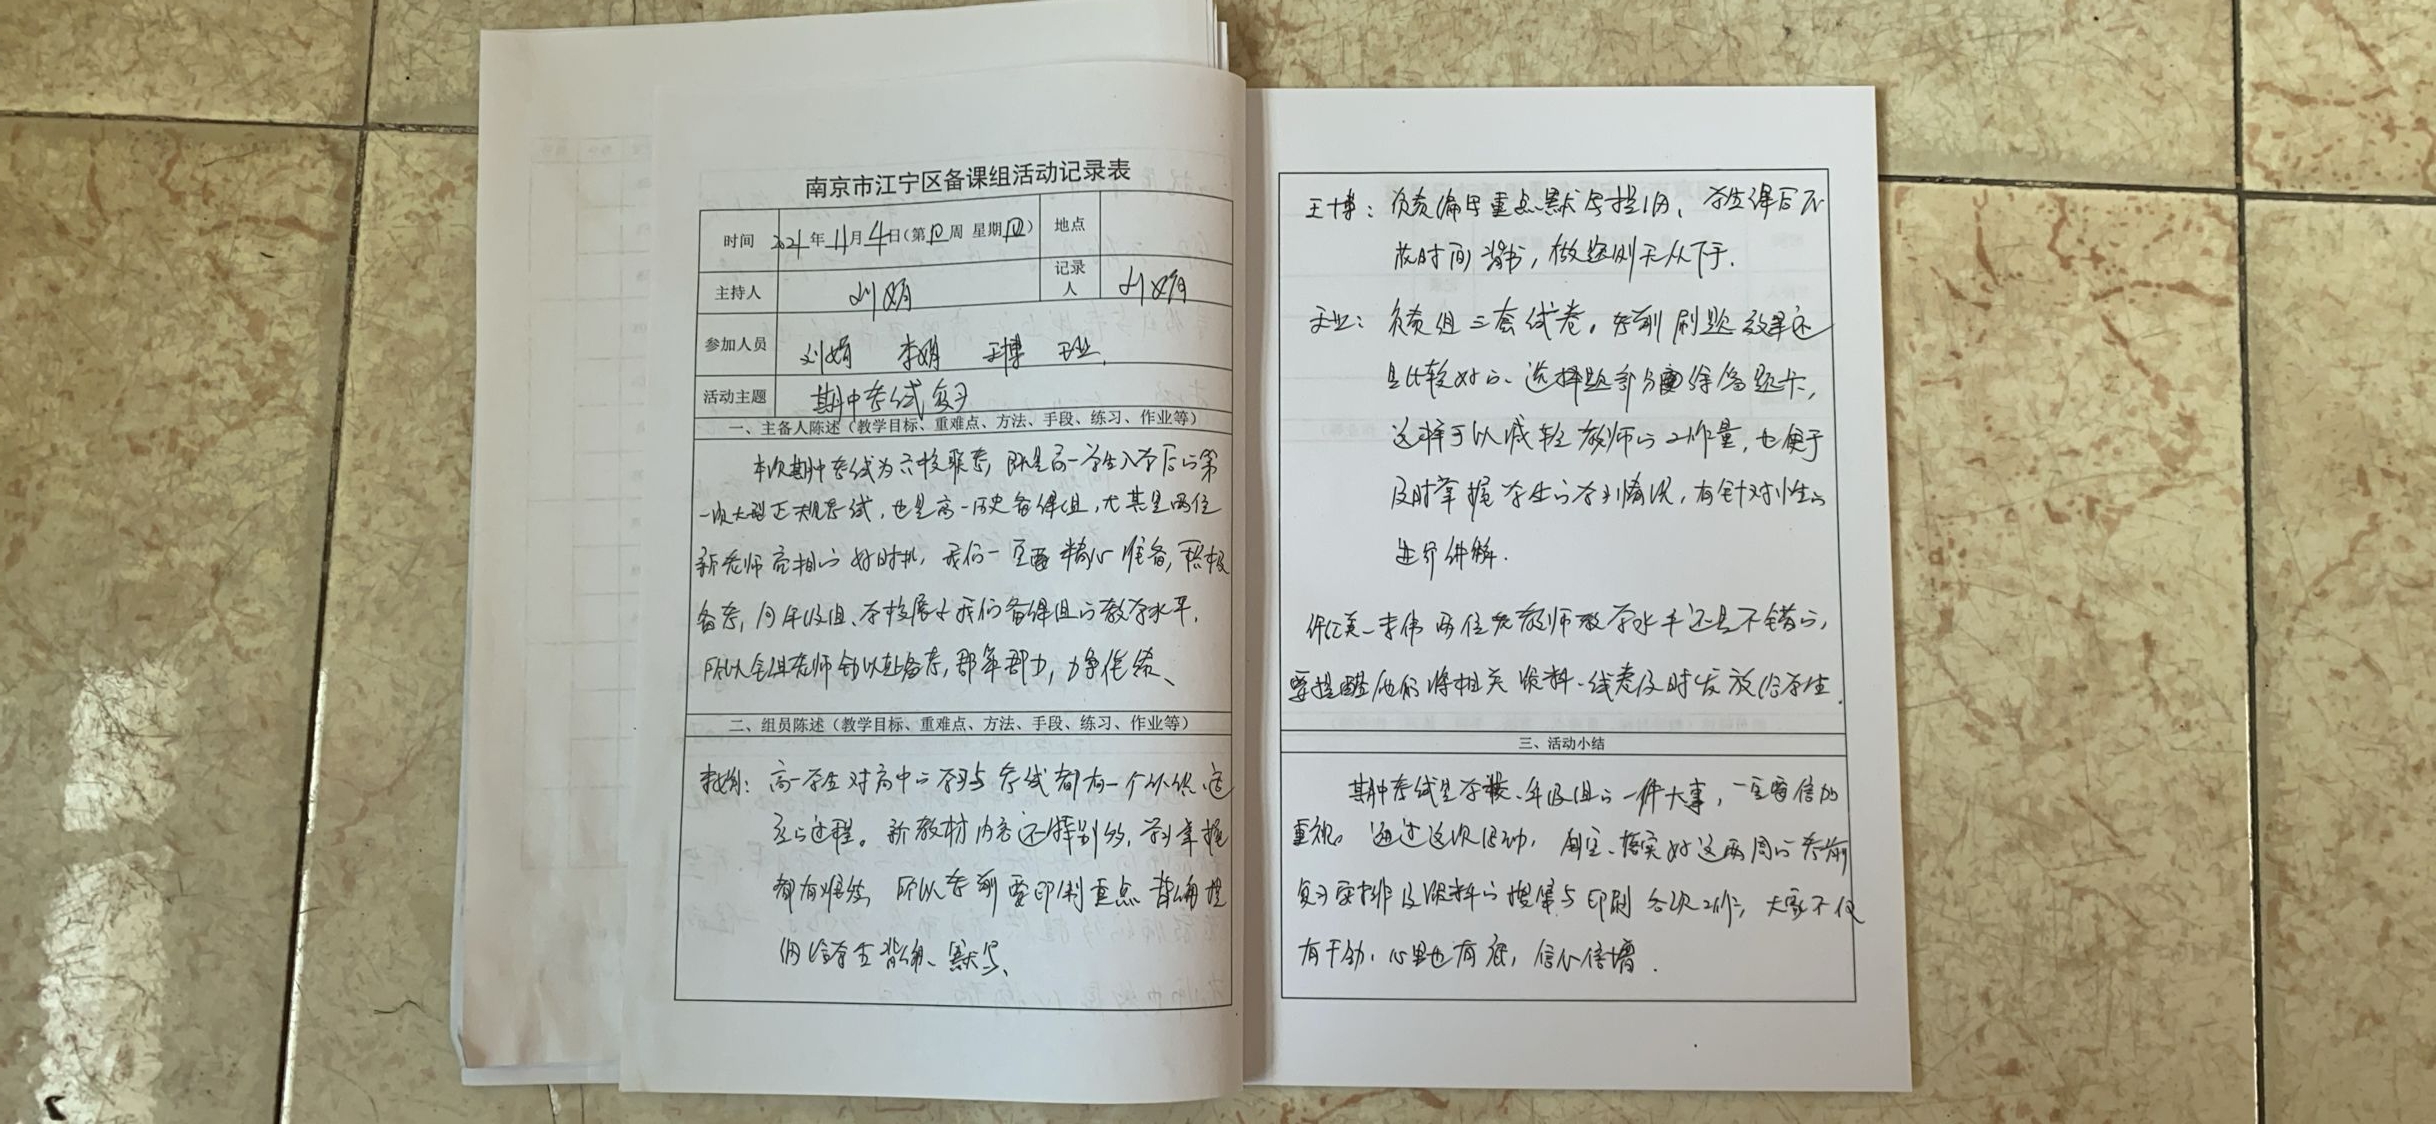 南京市江宁区备课组活动记录表
时间 2021年11月4日(第10周 星期四) 地点
主持人 刘娟 记录人 刘娟
参加人员 刘娟 李娟 王博 王业
活动主题 期中考试复习
一、主备人陈述(教学目标、重难点、方法、手段、练习、作业等)
本次期中考试为六校联考,既是高一学生入学后的第
一次大型正规考试,也是高一历史备课组,尤其是两位
新老师亮相的好时机,我们一定要精心准备,积极
备考,向年级组、学校展示我们备课组的教学水平.
所以全组老师全力以赴备考,群策群力,力争佳绩、
二、组员陈述(教学目标、重难点、方法、手段、练习、作业等)
李娟:高一学生对高中的学习与考试都有一个适
应的过程。新教材内容还特别多,学习掌握
都有难度 所以考前要印制重点背诵提
纲给学生背诵、默写、
王博:负责编写重点默写提纲、学生课后不
花时间背书,做题则无从下手.
王业:负责组三套试卷,考前刷题效果还
是比较好的、选择题部分要涂答题卡,
这样可以减轻教师的工作量,也便于
及时掌握学生的学习情况,有针对性的
进行讲解.
李伟两位老教师教学水平还是不错的,
要提醒他们将相关资料、试卷及时发放给学生.
三、活动小结
期中考试是学校、年级组的一件大事,一定要倍加
重视。通过这次活动,制定、落实好这两周的考前
复习安排及资料的搜集与印刷各项工作,大家不仅
有干劲,心里也有底,信心倍增.